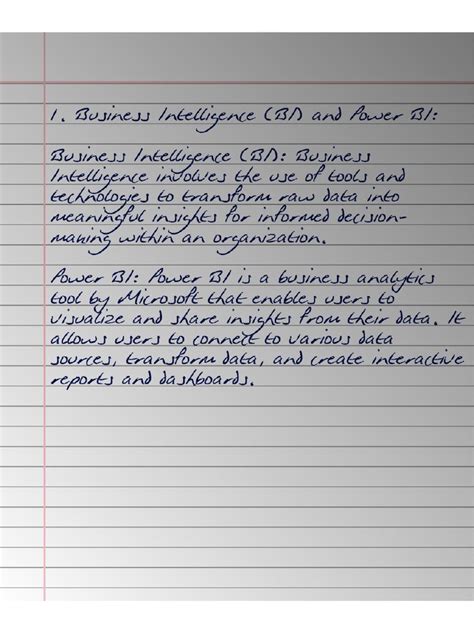 1. Business Intelligence (BI) and Power BI:
Business Intelligence (BI): Business
Intelligence involves the use of tools and
technologies to transform raw data into
meaningful insights for informed decision-
making within an organization.
Power BI: Power BI is a business analytics
tool by Microsoft that enables users to
visualize and share insights from their data. It
allows users to connect to various data
sources, transform data, and create interactive
reports and dashboards.